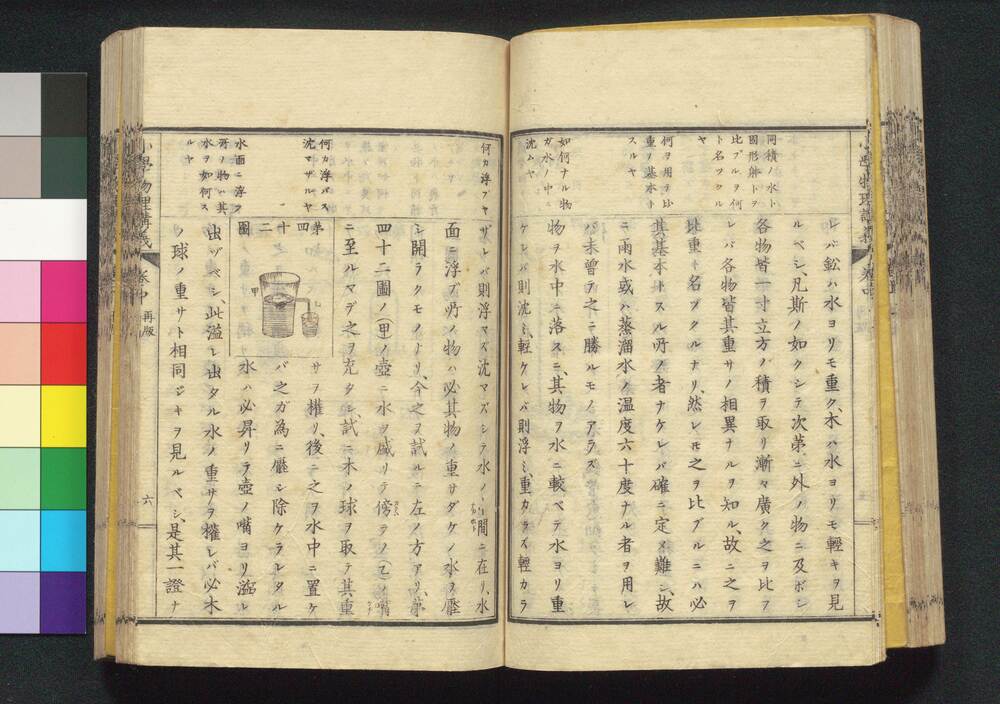 同積ノ水ト
固形躰トヲ
比ブルヲ何
ト名ヅクル
ヤ
何ヲ用ヲ比
重ノ基本ト
スルヤ
如何ナル物
ガ水ノ中ニ
沈ムヤ
レバ鉛ハ水ヨリモ重ク、木ハ水ヨリモ輕キヲ見
ルベシ、凡斯ノ如クシテ次第ニ外ノ物ニ及ボシ
各物皆一寸立方ノ積ヲ取リ漸々廣ク之ヲ比ブ
レバ各物皆其重サノ相異ナルヲ知ル、故ニ之ヲ
比重ト名ヅクルナリ、然レ𪜈之ヲ比ブルニハ必
其基本トスル所ノ者ナケレバ確ニ定メ難シ、故
ニ雨水或ハ蒸溜水ノ温度六十度ナル者ヲ用レ
バ未曾ヲ之ニ勝ルモノアラズ
物ヲ水中ニ落スニ、其物ヲ水ニ較ベテ水ヨリ重
ケレバ則沈ミ、輕ケレバ則浮ミ、重カラズ輕カラ
小學物理講義 卷中
何カ浮ブヤ
何カ浮バズ
沈マザルヤ
水面ニ浮ブ
所ノ物ハ其
水ヲ如何ス
ルヤ
ザレバ則浮マズ沈マズシテ水ノ中間ニ在リ、水
面ニ浮ブ所ノ物ハ必其物ノ重サダケノ水ヲ壓
シ開ラクモノナリ、今之ヲ試ルニ左ノ方アリ、第
四十二圖ノ(甲)ノ壺ニ水ヲ盛リテ傍ラノ(乙)ノ嘴
ニ至ルマデ之ヲ充タシ、試ニ木ノ球ヲ取テ其重
第四十二圖
サヲ權リ、後ニ之ヲ水中ニ置ケ
バ之ガ為ニ壓シ除ケラレタル
水ハ必昇リテ壺ノ嘴ヨリ溢レ
出ヅベシ、此溢レ出タル水ノ重サヲ權レバ必木
ノ球ノ重サト相同ジキヲ見ルベシ、是其一證ナ
小學物理講義 卷中 再版
六